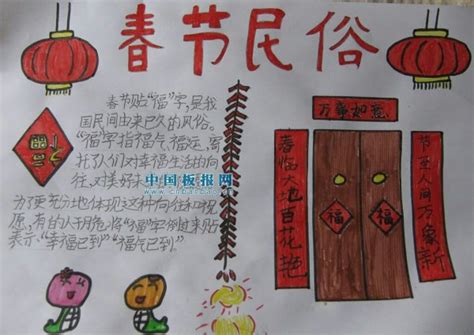 春节民俗
春节贴“福”字,是我
国民间由来已久的风俗。
“福”字指福气,福运,寄
托了人们对幸福生活的向
往,对美好未
中国板报网
为更充分地体现这种向往和祝
愿,有的人干脆将“福”字倒过来贴
表示“幸福已到”“福气已到”.
福
万事如意
春临大地百花艳
节至人间万象新
福
福